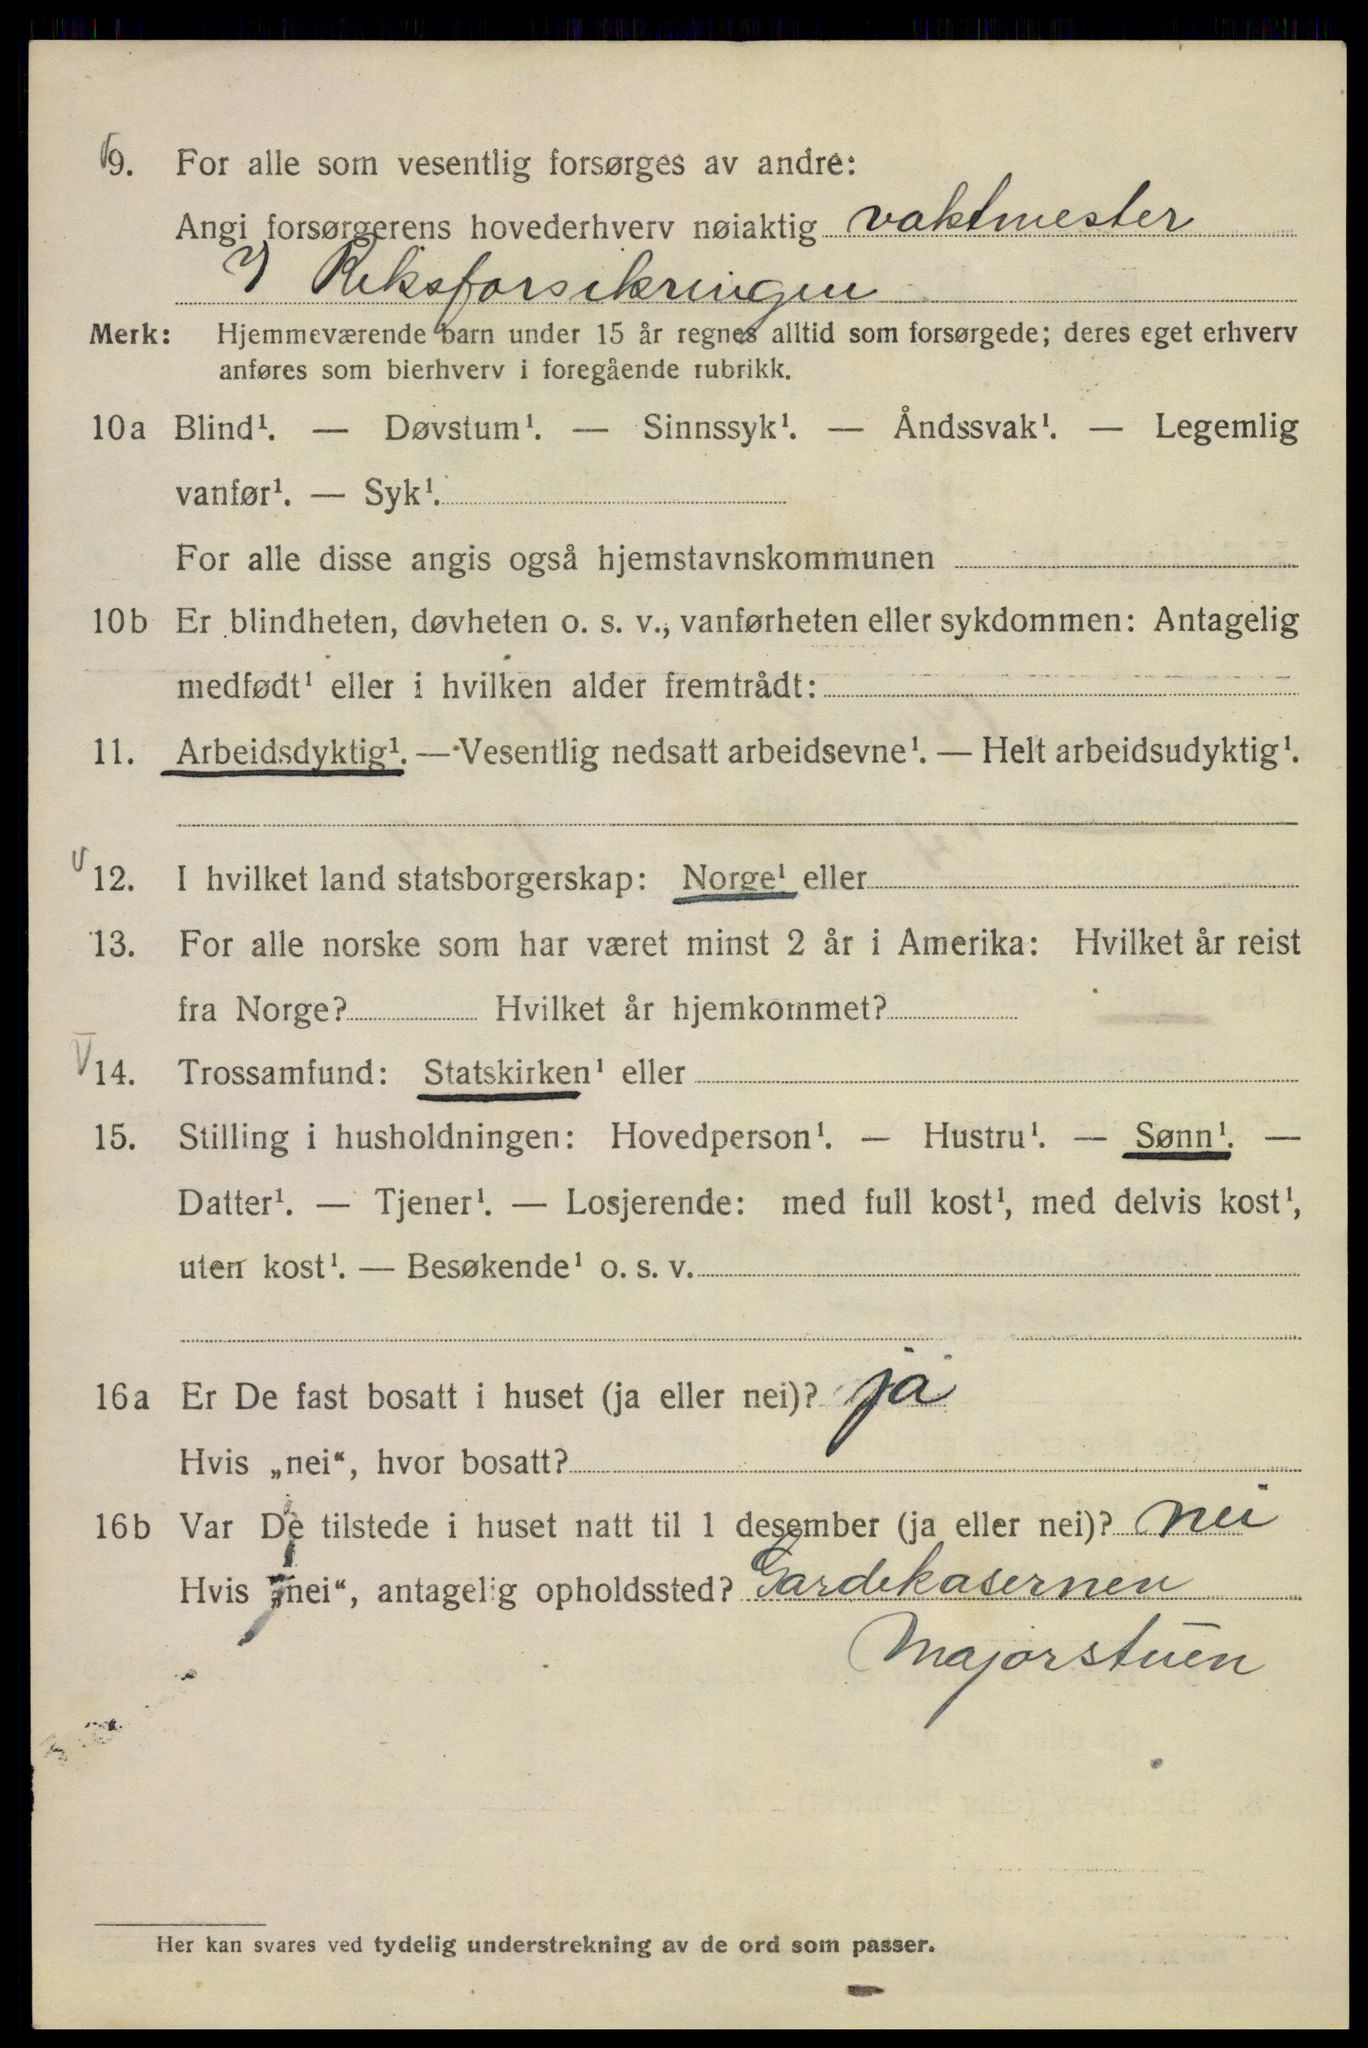 9. For alle som vesentlig forsørges av andre:
Angi forsørgerens hovederhverv nøiaktig vaktmester
I Riksforsikringen
Merk: Hjemmeværende barn under 15 år regnes alltid som forsørgede; deres eget erhverv
anføres som bierhverv i foregående rubrikk.
10a Blind¹. — Døvstum¹. — Sinnssyk¹. — Åndssvak¹. — Legemlig
vanfør¹. — Syk¹.
For alle disse angis også hjemstavnskommunen
10b Er blindheten, døvheten o. s. v., vanførheten eller sykdommen: Antagelig
medfødt¹ eller i hvilken alder fremtrådt:
11. Arbeidsdyktig¹. — Vesentlig nedsatt arbeidsevne¹. — Helt arbeidsudyktig¹.
12. I hvilket land statsborgerskap: Norge¹ eller
13. For alle norske som har været minst 2 år i Amerika: Hvilket år reist
fra Norge? Hvilket år hjemkommet?
14. Trossamfund: Statskirken¹ eller
15. Stilling i husholdningen: Hovedperson¹. — Hustru¹. — Sønn¹. —
Datter¹. — Tjener¹. — Losjerende: med full kost¹, med delvis kost¹,
uten kost¹. — Besøkende¹ o. s. v.
16a Er De fast bosatt i huset (ja eller nei)? ja
Hvis „nei“, hvor bosatt?
16b Var De tilstede i huset natt til 1 desember (ja eller nei)? nei
Hvis „nei“, antagelig opholdssted? Gardekasernen
Majorstuen
Her kan svares ved tydelig understrekning av de ord som passer.